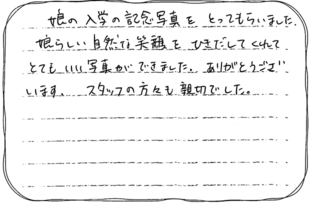 娘の入学の記念写真をとってもらいました。
娘らしい自然な笑顔をひきだしてくれて
とてもいい写真ができました。ありがとうござ
います。 スタッフの方々も親切でした。